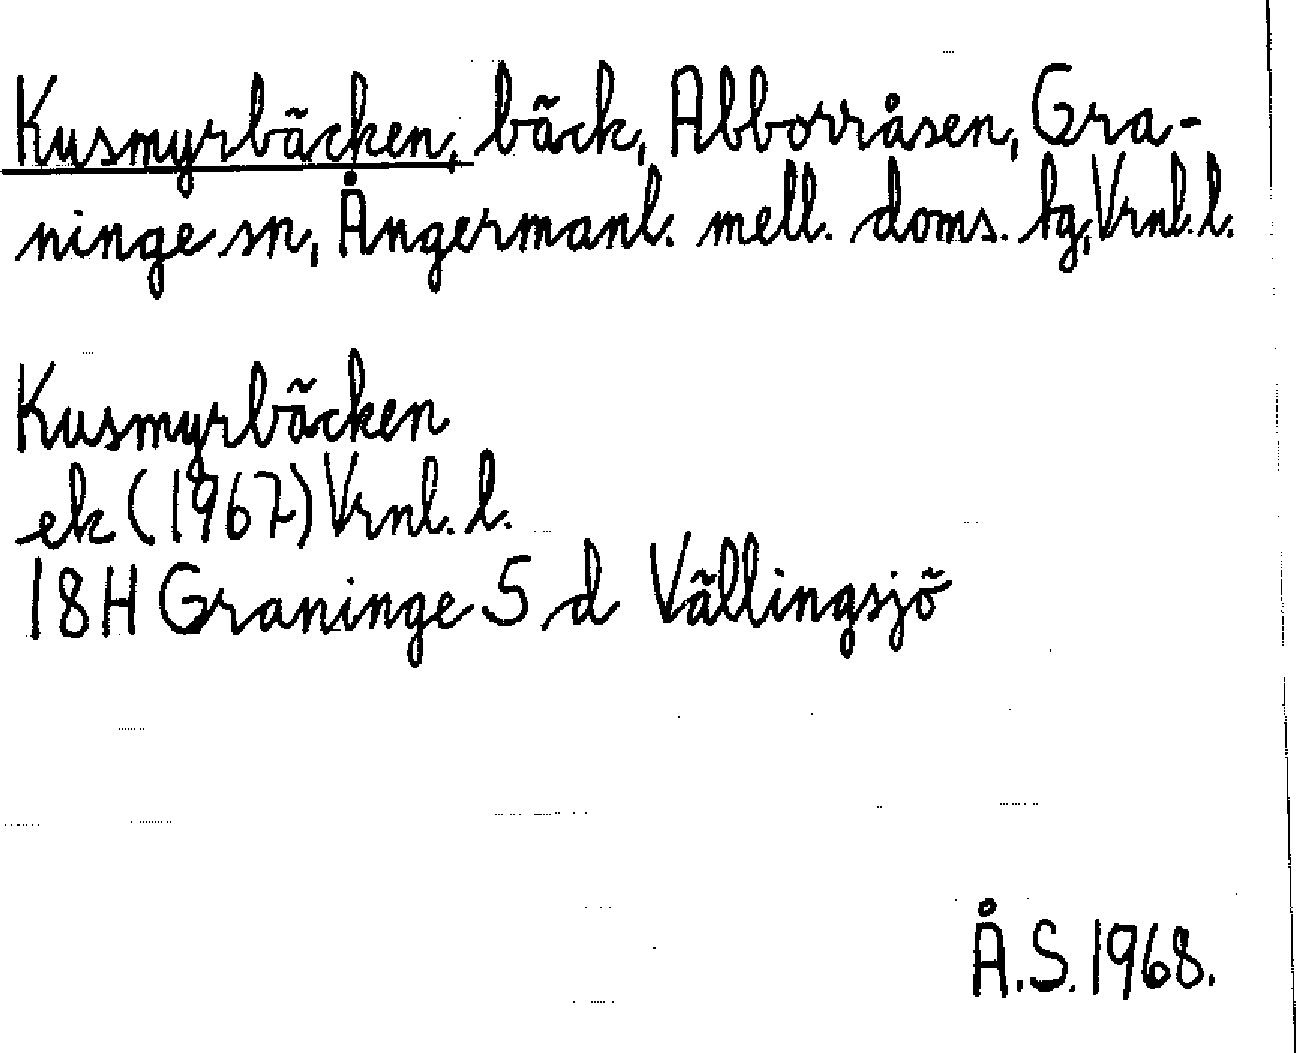 Kusmyrbäcken, bäck, Abborråsen, Gra-
ninge sn, Ångermanl. mell. doms. tg, Vrnl. l.
Kusmyrbäcken
ek (1967) Vrnl. l.
18H Graninge 5 d Vällingsjö
Å.S. 1968.